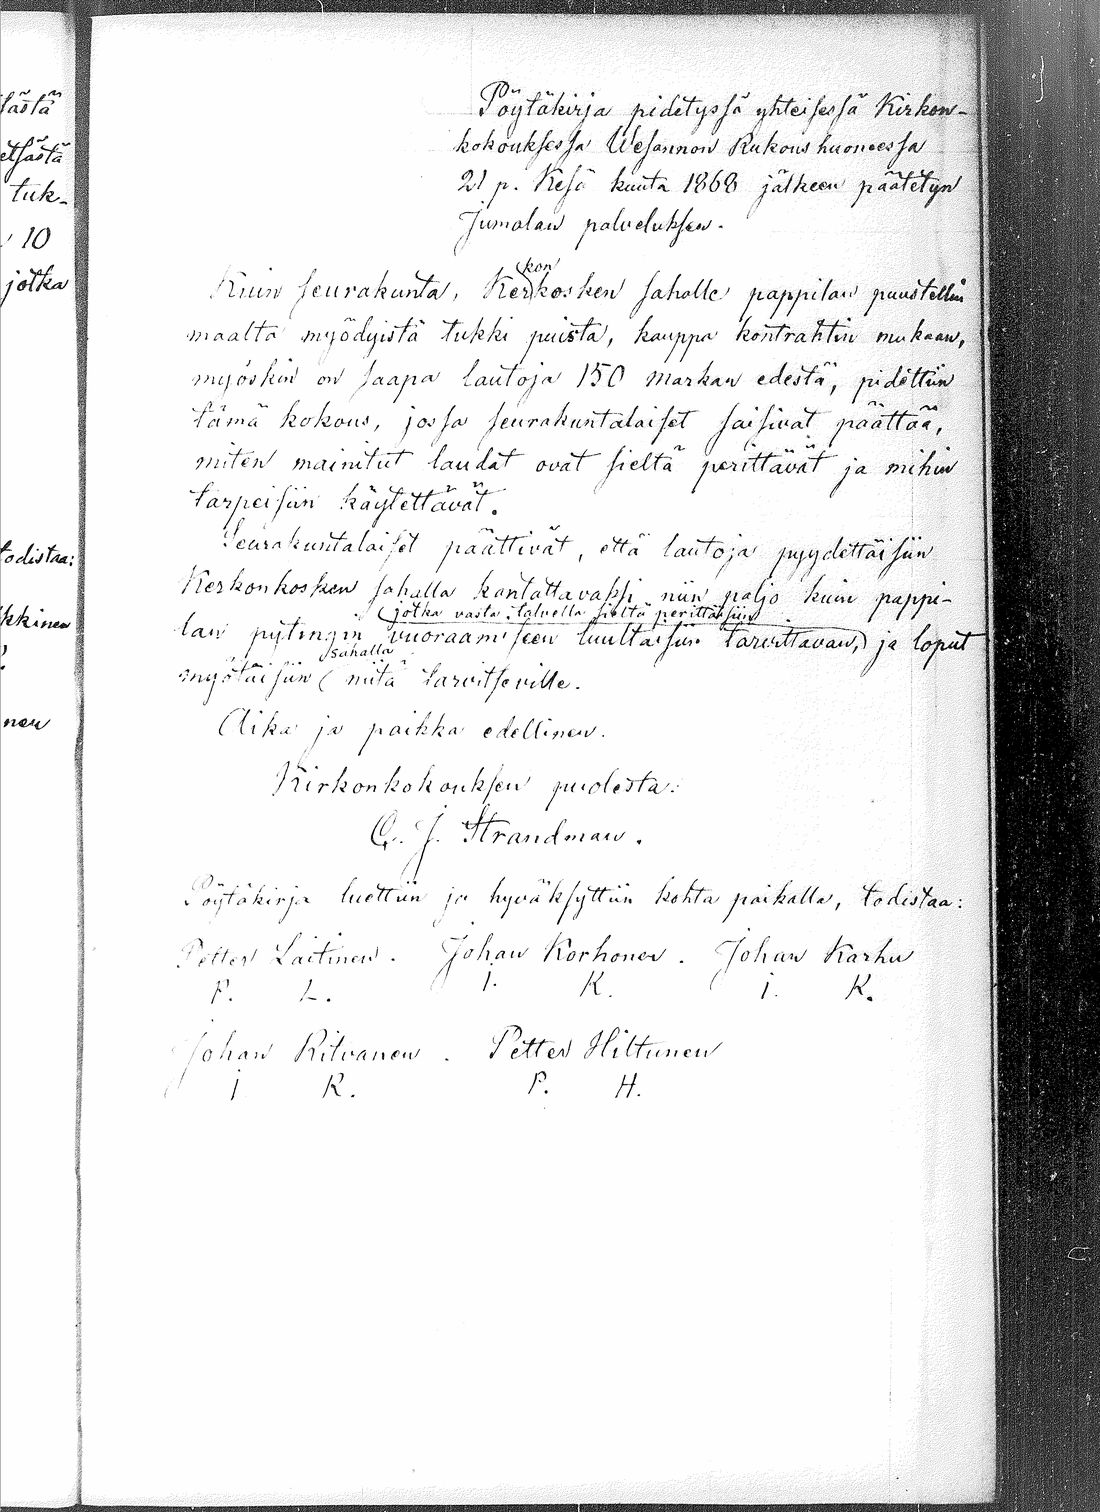 tästä
etsästä
tuk-
10
jotka
todistaa:
kkinen
nen
Pöytäkirja pidetyssä yhteisessä Kirkon-
kokouksessa Wesannon Rukoushuoneessa
21 p. Kesä kuuta 1868 jälkeen päätetyn
Jumalan palveluksen.
kon
Kuin seurakunta, Kerkosken sahalle pappilan puustellin
maalta myödyistä tukki puista, kauppa kontrahtin mukaan,
myöskin on saapa lautoja 150 markan edestä, pidettiin
tämä kokous, jossa seurakuntalaiset saisivat päättää,
miten mainitut laudat ovat sieltä perittävät ja mihin
tarpeisiin käytettävät.
Seurakuntalaiset päättivät, että lautoja pyydettäisiin
Kerkonkosken sahalla kantattavaksi niin paljo kuin pappi-
jotka vasta talvella sieltä perittäisiin
lan pytingin vuoraamiseen luultaisiin tarvittavan, ja loput
sahalla
myötäisiin niitä tarvitseville.
Aika ja paikka edellinen.
Kirkonkokouksen puolesta:
C. J. Strandman.
Pöytäkirja luettiin ja hyväksyttiin kohta paikalla, todistaa:
Petter Laitinen. Johan Korhonen. Johan Karhu
P. L. I. K. I. K.
Johan Ritvanen. Petter Hiltunen
I K. P. H.